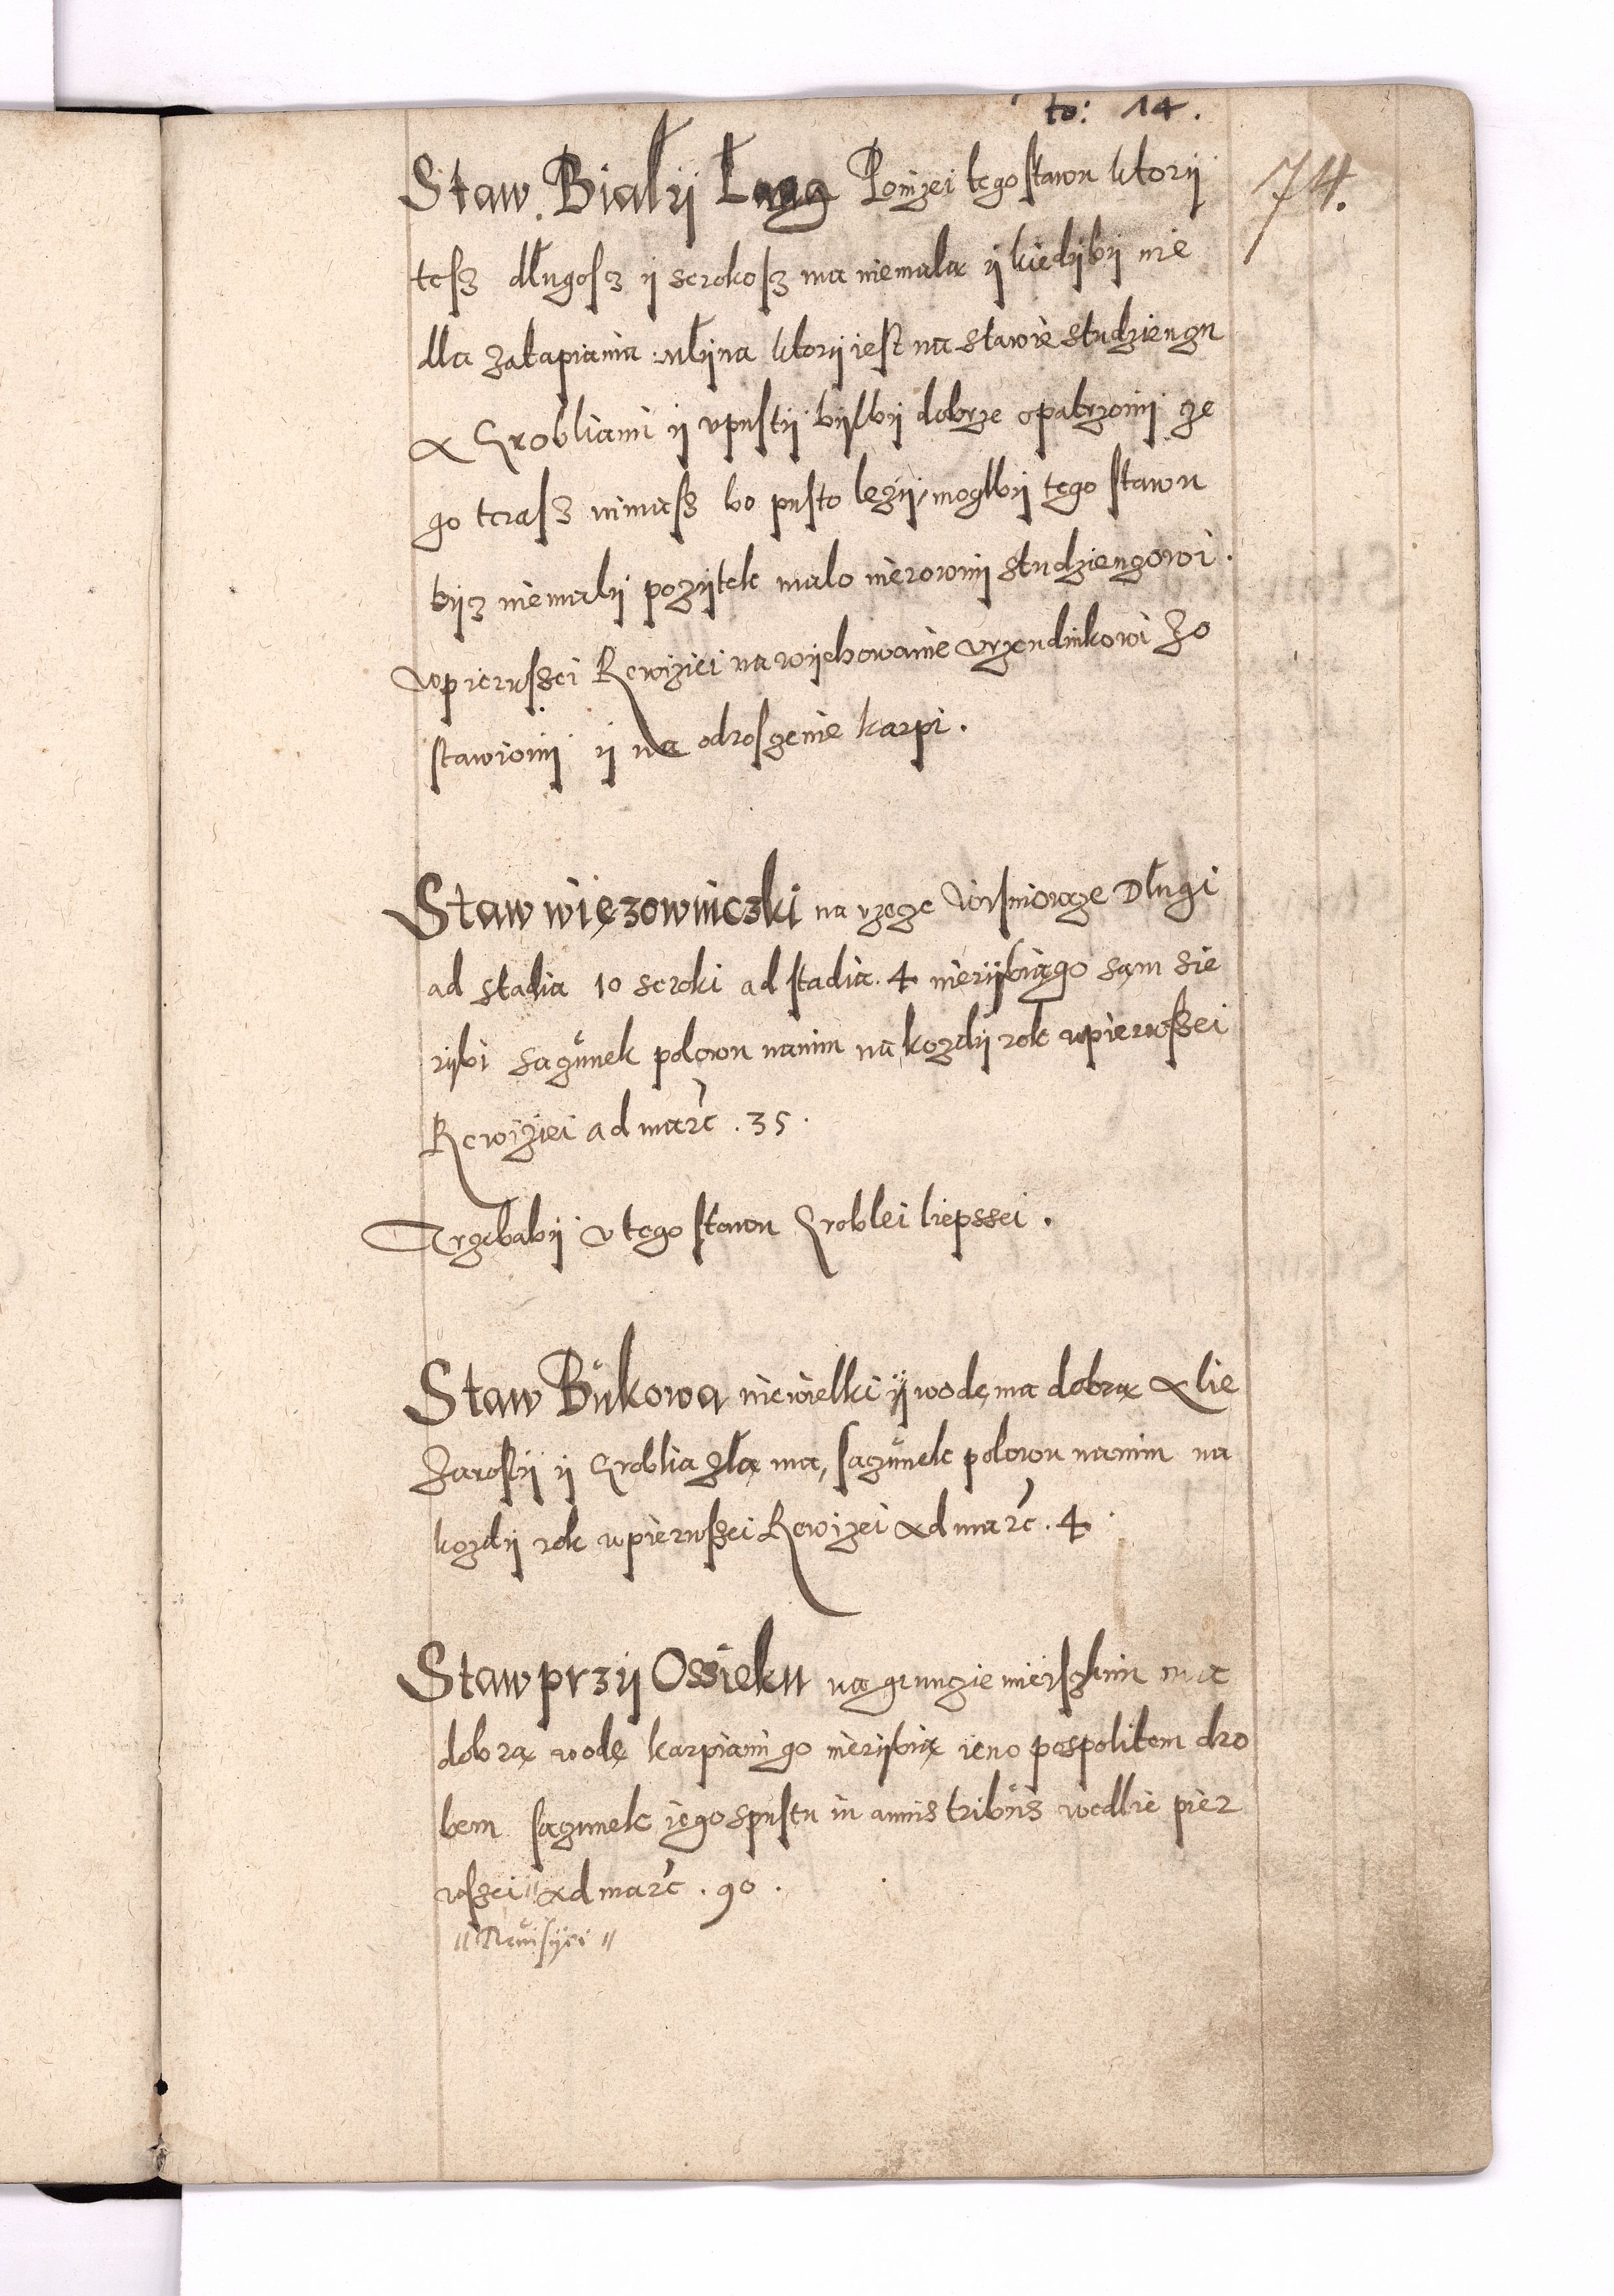 to: 14.
74.
Staw Białÿ Ług Ponizei tego stawu ktorÿ
tesz długosz ÿ serokosz ma niemałą ÿ kiedÿbÿ nie
dla zatapiania młÿna ktorÿ iest na stawie studziengu
a Groblami ÿ vpustÿ bÿłbÿ dobrze opatrzonÿ ze
go terasz nimasz bo pusto lezÿ, mogłbÿ tego stawu
bÿz niemałÿ pozÿtek malo nierownÿ studziengowi.
wpierwszei Rewiziei na wÿchowanie vrzendnikowi zo
stawionÿ ÿ na odroszenie karpi.
Staw więzowniczki na rzeze Długi
ad stadia 10 seroki ad stadia. 4 nierÿbiągo sąm sie
rÿbi sazunek polowu nanim na kozdÿ rok wpierwszei
Rewiziei ad marc. 35.
Trzebabÿ v tego stawu Groblei liepssei.
Staw Bukowa niewielki ÿ wodę ma dobrą alie
zarostÿ ÿ Groblia złą ma, sazunek polowu nanim na
kozdÿ rok wpierwszei Rewizei ad marc. 4.
Staw przÿ Ossieku na grunzie mieiszkim ma
dobrą wodę karpiami go nierÿbią ieno pospolitem dro
bem sazunek iego spustu in annis tribus wedlie pier
wszei " ad marc. 90.
" Rewisÿei "